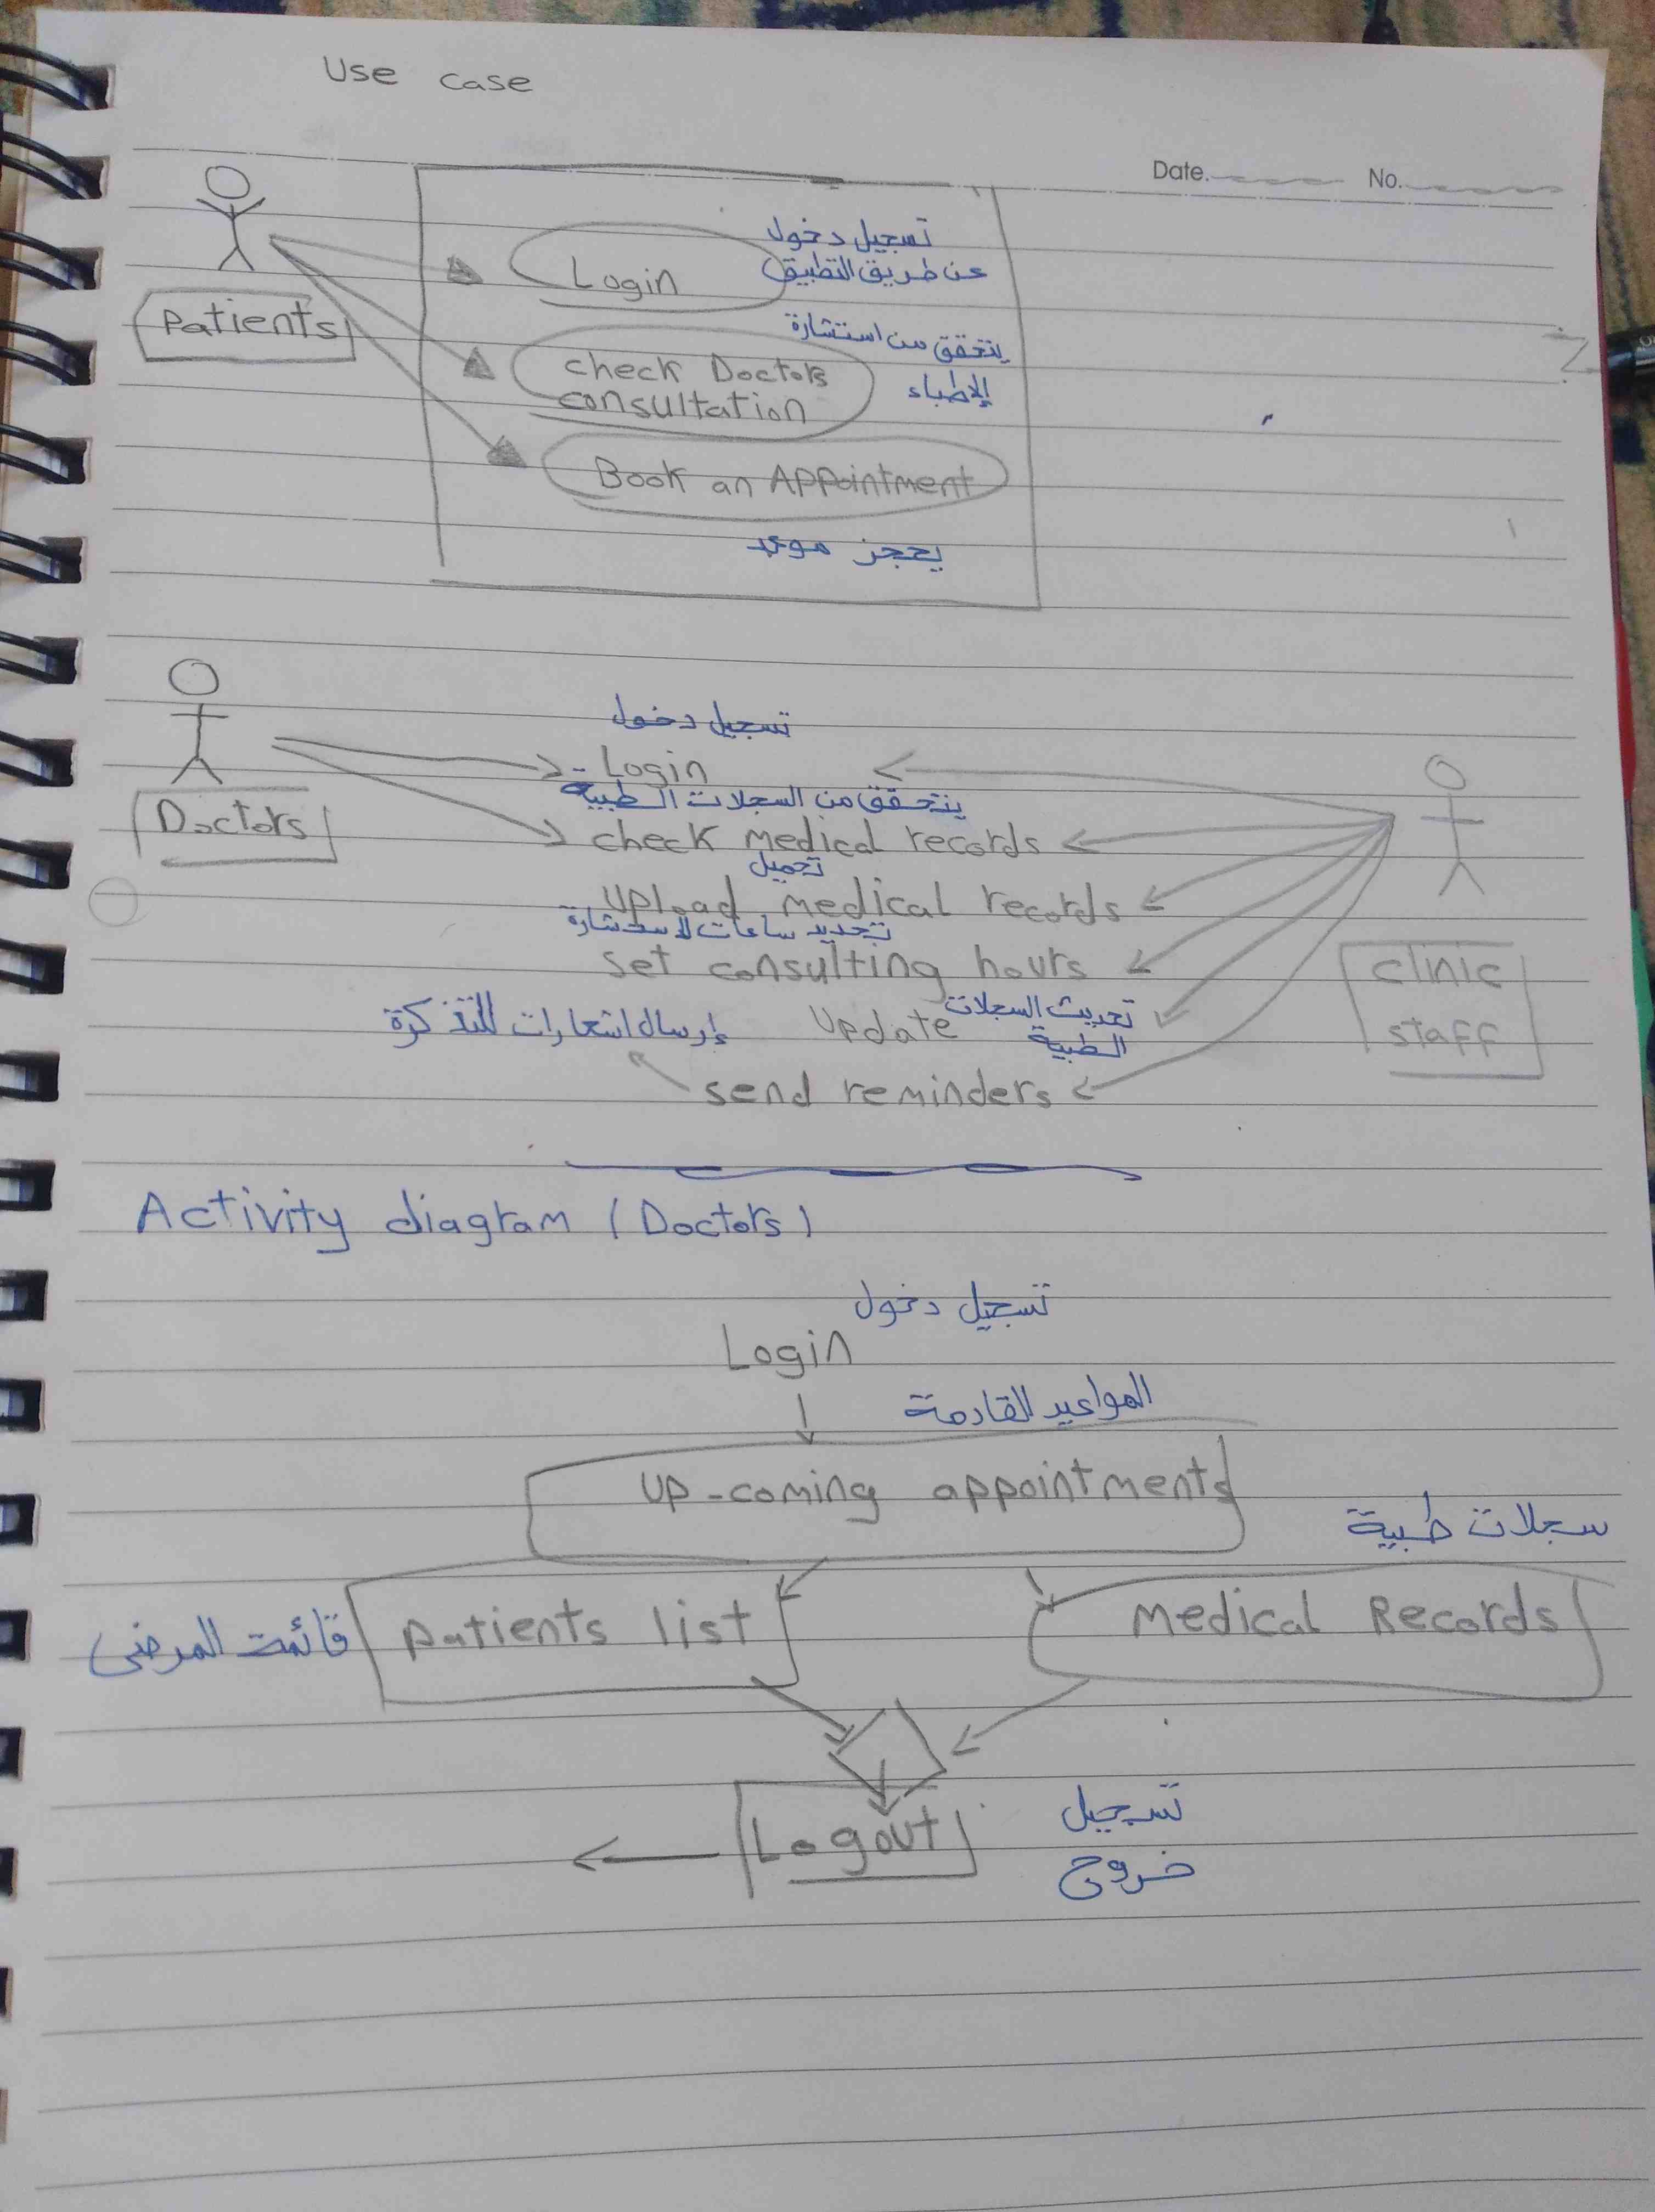 Use case
Date. No.
تسجيل دخول
عن طريق التطبيق
Login
Patients
يتحقق من استشارة
الاطباء
check Doctors
consultation
Book an APPointment
يحجز موعد
تسجيل دخول
- Login
يتحقق من السجلات الطبية
Doctors
check medical records
تحميل
upload medical records
تحديد ساعات الاستشارة
set consulting hours
clinic
staff
تحديث السجلات
الطبية
Update
إرسال اشعارات للتذكرة
send reminders
Activity diagram (Doctors)
تسجيل دخول
Login
المواعيد القادمة
UP-coming appointments
سجلات طبية
patients list
قائمة المرضى
Medical Records
Logout
تسجيل
خروج